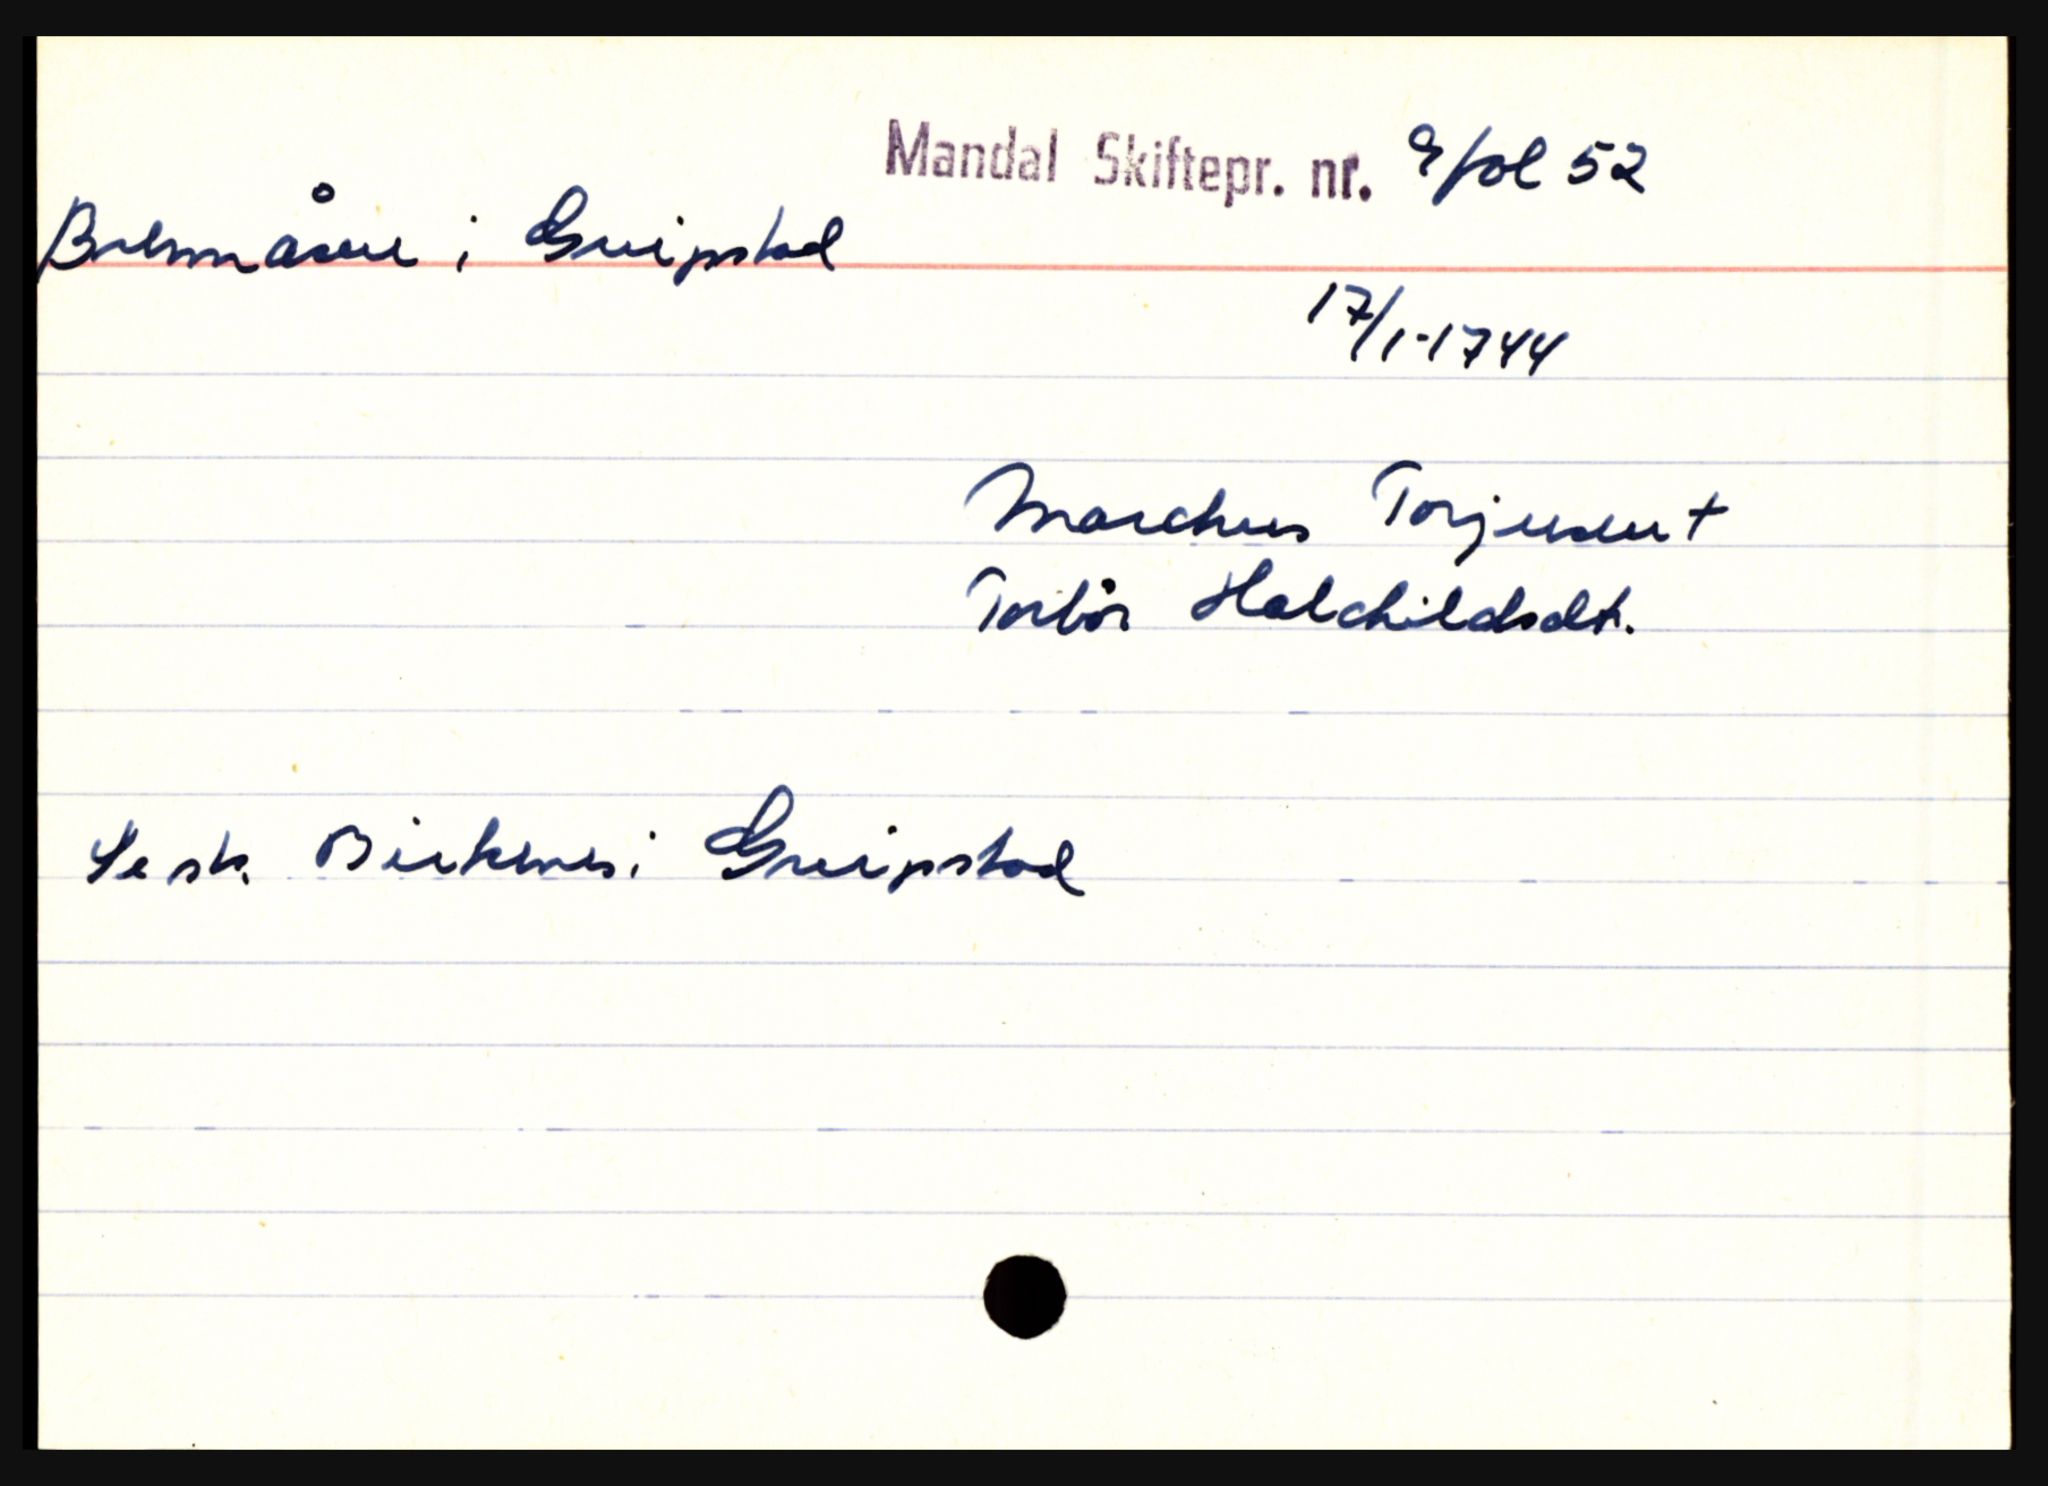 Mandal Skiftepr. nr. 9 fol 52
i Greipstad
17/1-1744
Marchus Torjusen +
Torbör Halchildsdt.
Se sk. Birkenes i Greipstad